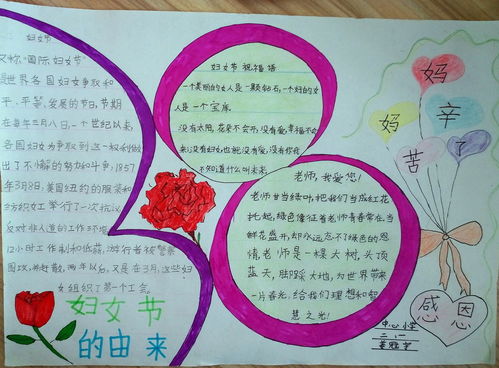 妇女节
又称“国际妇女节”
是世界各国妇女争取和
平、平等、发展的节日,节期
在每年三月八日,一个世纪以来,
各国妇女为争取到这一权利做
出了不懈的努力和斗争,1857
年3月8日,美国纽约的服装和
纺织女工举行了一次抗议,
反对非人道的工作环境,
12小时工作制和低薪,游行者被警察
围攻,并赶散,两年以后,又是在3月,这些妇
女组织了第一个工会。
妇女节
的由来
妇女节祝福语
一个美丽的女人是一颗钻石,一个好的女
人是一个宝库
没有太阳,花朵不会开,没有爱,幸福不会
来;没有妇女也就没有爱,没有你我
不知道什么叫未来。
老师,我爱您!
老师甘当绿叶,把我们当成红花
托起,绿色像征着老师青春常在,当
鲜花盛开,却永远忘不了绿色的恩
情,老师是一棵大树,头顶
蓝天,脚踩大地,为世界带来
一片春光,给我们理想和智
慧之光!
妈
妈
辛
苦
了
感恩
中心小学
二、一